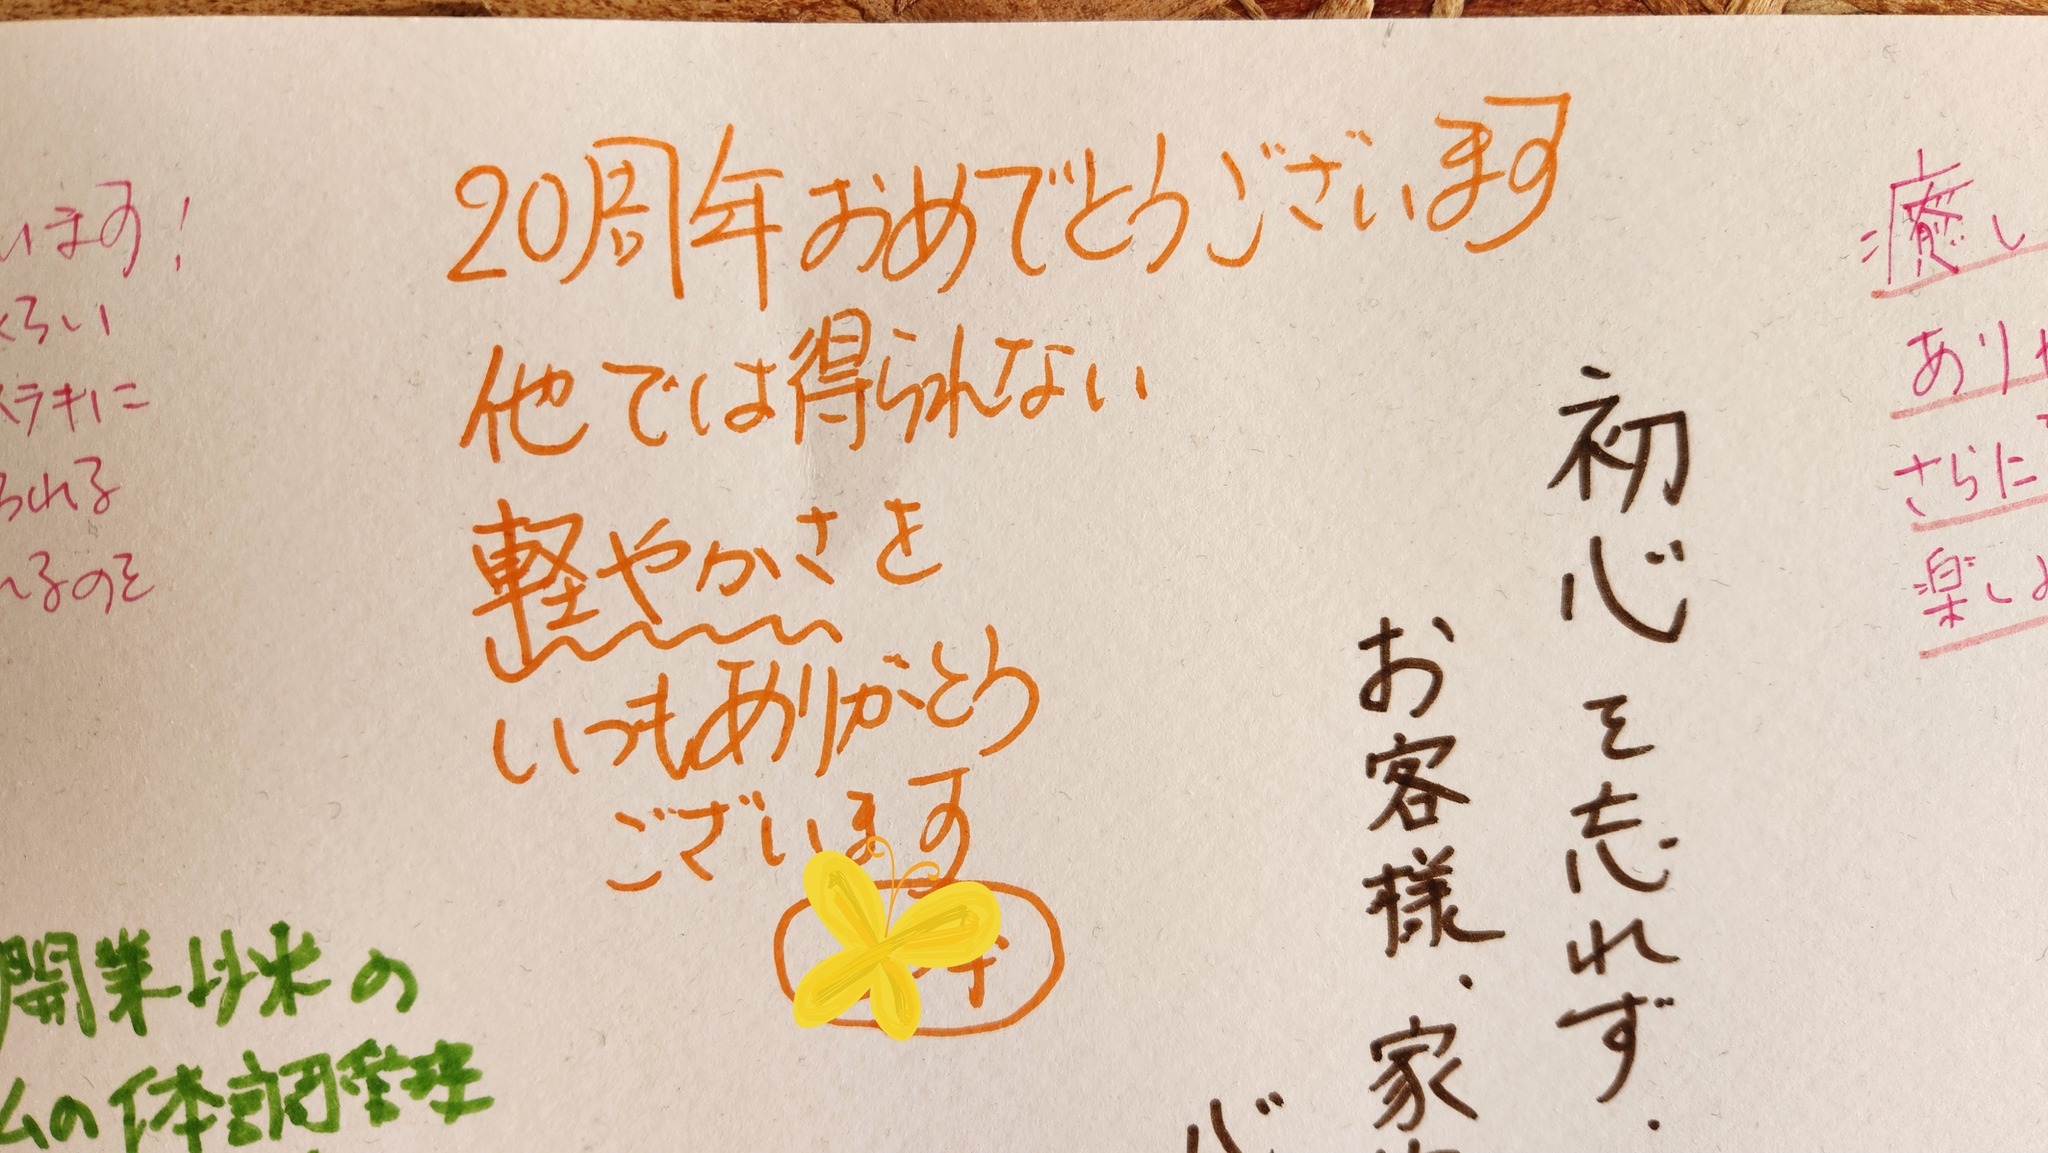 20周年おめでとうございます
他では得られない
軽やかさを
いつもありがとう
ございます
います!
くらい
ラキに
られる
れるのを
開業以来の
ムの体調管理
初心を忘れず、
お客様、家
心
癒し
ありが
さらに
楽し